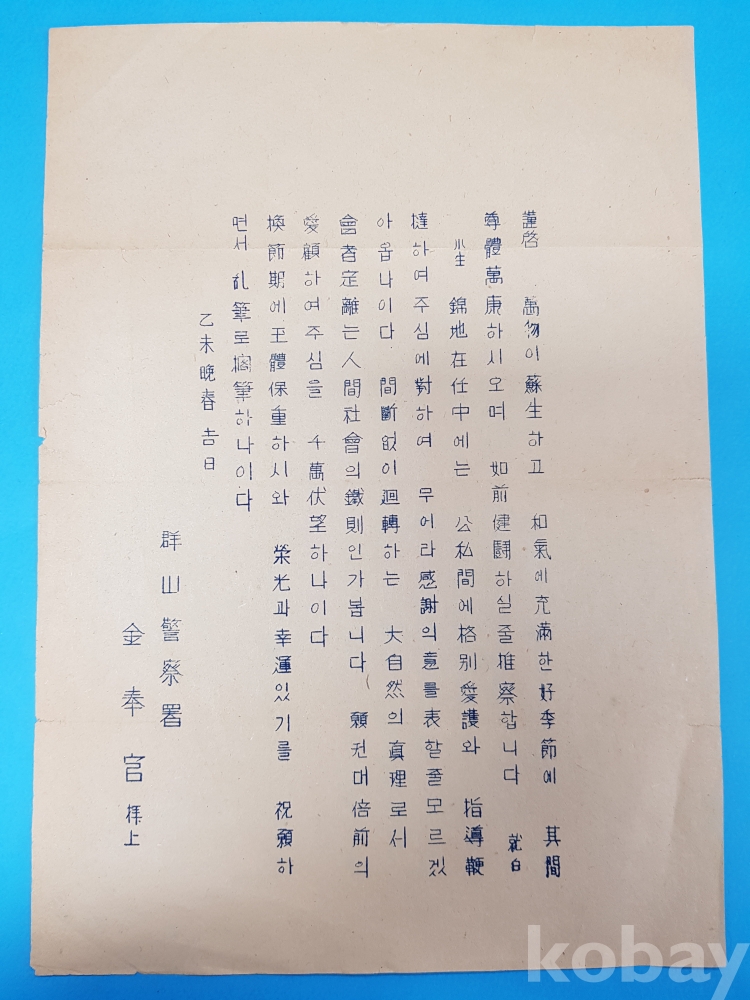 謹啓 萬物이 蘇生하고 和氣에充滿한好季節에 其間
尊體萬康하시오며 如前健鬪하실줄推察합니다 就白
小生 錦地在任中에는 公私間에格別愛護와 指導鞭
撻하여주심에對하여 무어라感謝의意를表할줄모르겠
아옵나이다 間斷없이廻轉하는 大自然의眞理로서
會者定離는人間社會의鐵則인가봅니다 願컨대倍前의
愛顧하여주심을 千萬伏望하나이다
換節期에玉體保重하시와 榮光과幸運있기를 祝願하
면서 乱筆로擱筆하나이다
乙未晩春吉日
群山警察署
金奉官 拜上
kobay